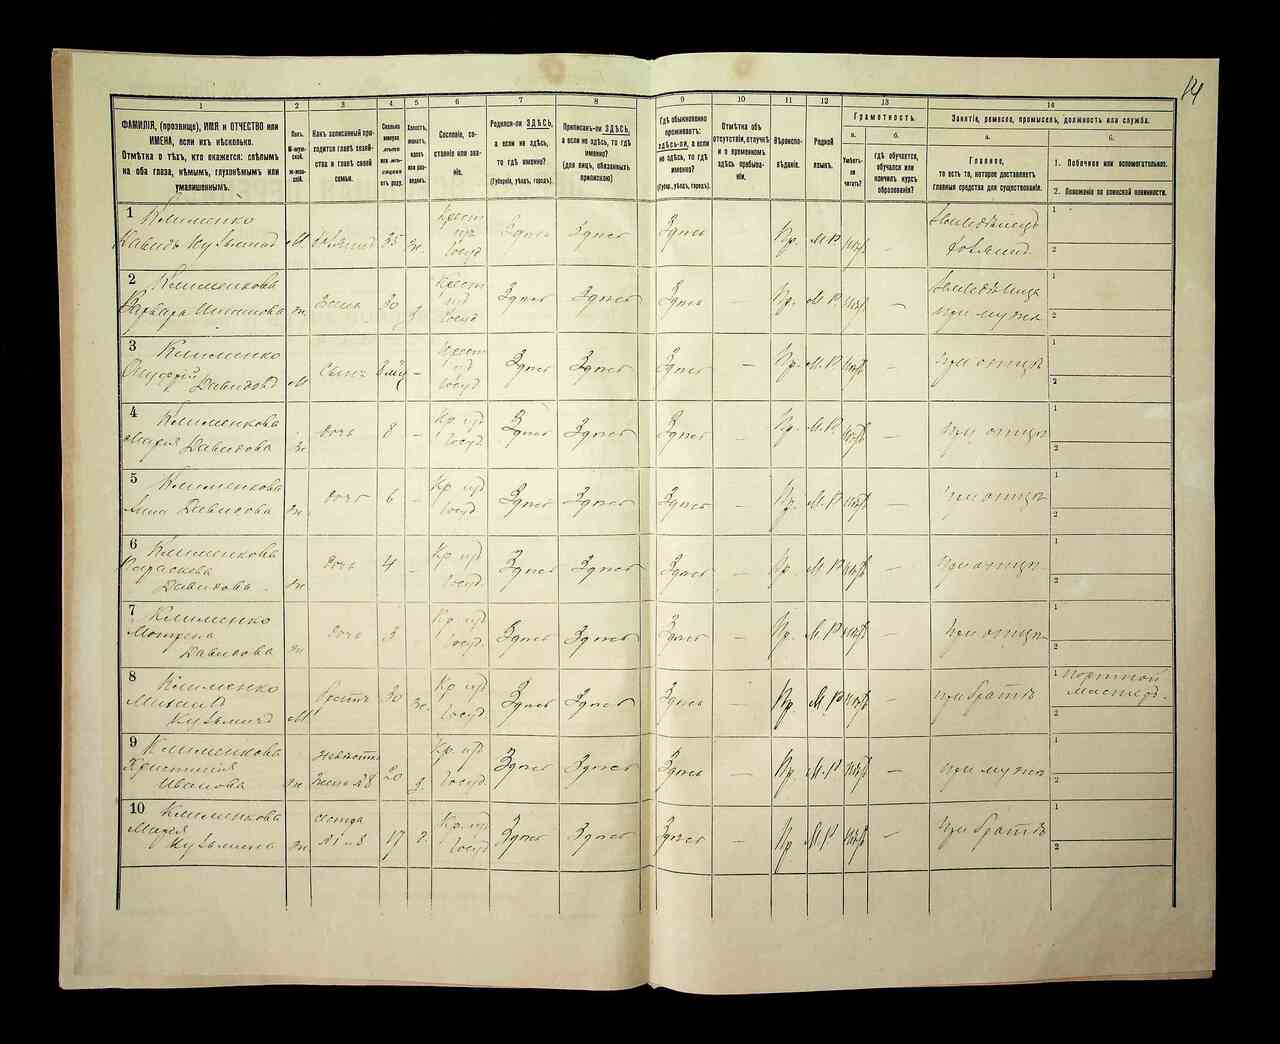 14
1
2
3
4
5
6
7
8
9
10
11
12
13
14
ФАМИЛІЯ, (прозвище), ИМЯ и ОТЧЕСТВО или
ИМЕНА, если ихъ нѣсколько.
Отмѣтка о тѣхъ, кто окажется: слѣпымъ
на оба глаза, нѣмымъ, глухонѣмымъ или
умалишеннымъ.
Полъ.
М-муж-
ской.
Ж-жен-
скій.
Какъ записанный при-
ходится главѣ хозяй-
ства и главѣ своей
семьи.
Сколько
минуло
лѣтъ
или мѣ-
сяцевъ
отъ роду.
Холостъ,
женатъ,
вдовъ
или раз-
веденъ.
Сословіе, со-
стояніе или зва-
ніе.
Родился-ли ЗДѢСЬ,
а если не здѣсь,
то гдѣ именно?
(Губернія, уѣздъ, городъ).
Приписанъ-ли ЗДѢСЬ,
а если не здѣсь, то гдѣ
именно?
(для лицъ, обязанныхъ
припискою)
Гдѣ обыкновенно
проживаетъ:
здѣсь-ли, а если
не здѣсь, то гдѣ
именно?
(Губернія, уѣздъ, городъ).
Отмѣтка объ
отсутствіи, отлучкѣ
и о временномъ
здѣсь пребыва-
ніи.
Вѣроиспо-
вѣданіе.
Родной
языкъ.
Грамотность.
а.
Умѣетъ-
ли
читать?
б.
Гдѣ обучается,
обучался или
кончилъ курсъ
образованія?
Занятіе, ремесло, промыселъ, должность или служба.
а.
Главное,
то есть то, которое доставляетъ
главныя средства для существованія.
б.
1. Побочное или вспомогательное.
2. Положеніе по воинской повинности.
1 Клименко
Давидъ Кузьмичъ М хозяинъ 35 ж. Крест изъ Госуд Здѣсь Здѣсь Здѣсь Пр. М.Р. нѣтъ — Земледѣлецъ хозяинъ 1 2
2 Клименкова
Варвара ж. Жена 30 з. Крест изъ Госуд Здѣсь Здѣсь Здѣсь — Пр. М.Р. нѣтъ — Земледѣлица при мужѣ 1 2
3 Клименко
Онуфрій Давидовъ М Сынъ — Крест изъ Госуд Здѣсь Здѣсь Здѣсь — Пр. М.Р. нѣтъ — при отцѣ 1 2
4 Клименкова
Марія Давидова ж. дочь 8 — Кр. изъ Госуд Здѣсь Здѣсь Здѣсь Пр. М.Р. нѣтъ — при отцѣ 1 2
5 Клименкова
Анна Давидова ж. дочь 6 — Кр. изъ Госуд Здѣсь Здѣсь Здѣсь — Пр. М.Р. нѣтъ — при отцѣ 1 2
6 Клименкова
Параскева
Давидова ж. дочь 4 — Кр. изъ Госуд. Здѣсь Здѣсь Здѣсь — Пр. М.Р. нѣтъ — при отцѣ 1 2
7 Клименко
Мотрена
Давидова ж. дочь 3 Кр. изъ Госуд. Здѣсь Здѣсь Здѣсь — Пр. М.Р. нѣтъ — при отцѣ 1 2
8 Клименко
Михаилъ
Кузьмичъ М братъ 30 ж. Кр изъ Госуд. Здѣсь Здѣсь Здѣсь — Пр. М.Р. нѣтъ — при братѣ 1 портной мастеръ. 2
9 Клименкова
Христинія
Иванова ж. невѣстка Жена №8 20 з. Кр. изъ Госуд. Здѣсь Здѣсь Здѣсь — Пр. М.Р. нѣтъ — при мужѣ 1 2
10 Клименкова
Марія
Кузьмина ж. сестра №1 и 8 17 Кр. изъ Госуд Здѣсь Здѣсь Здѣсь — Пр М.Р нѣтъ — при братѣ 1 2